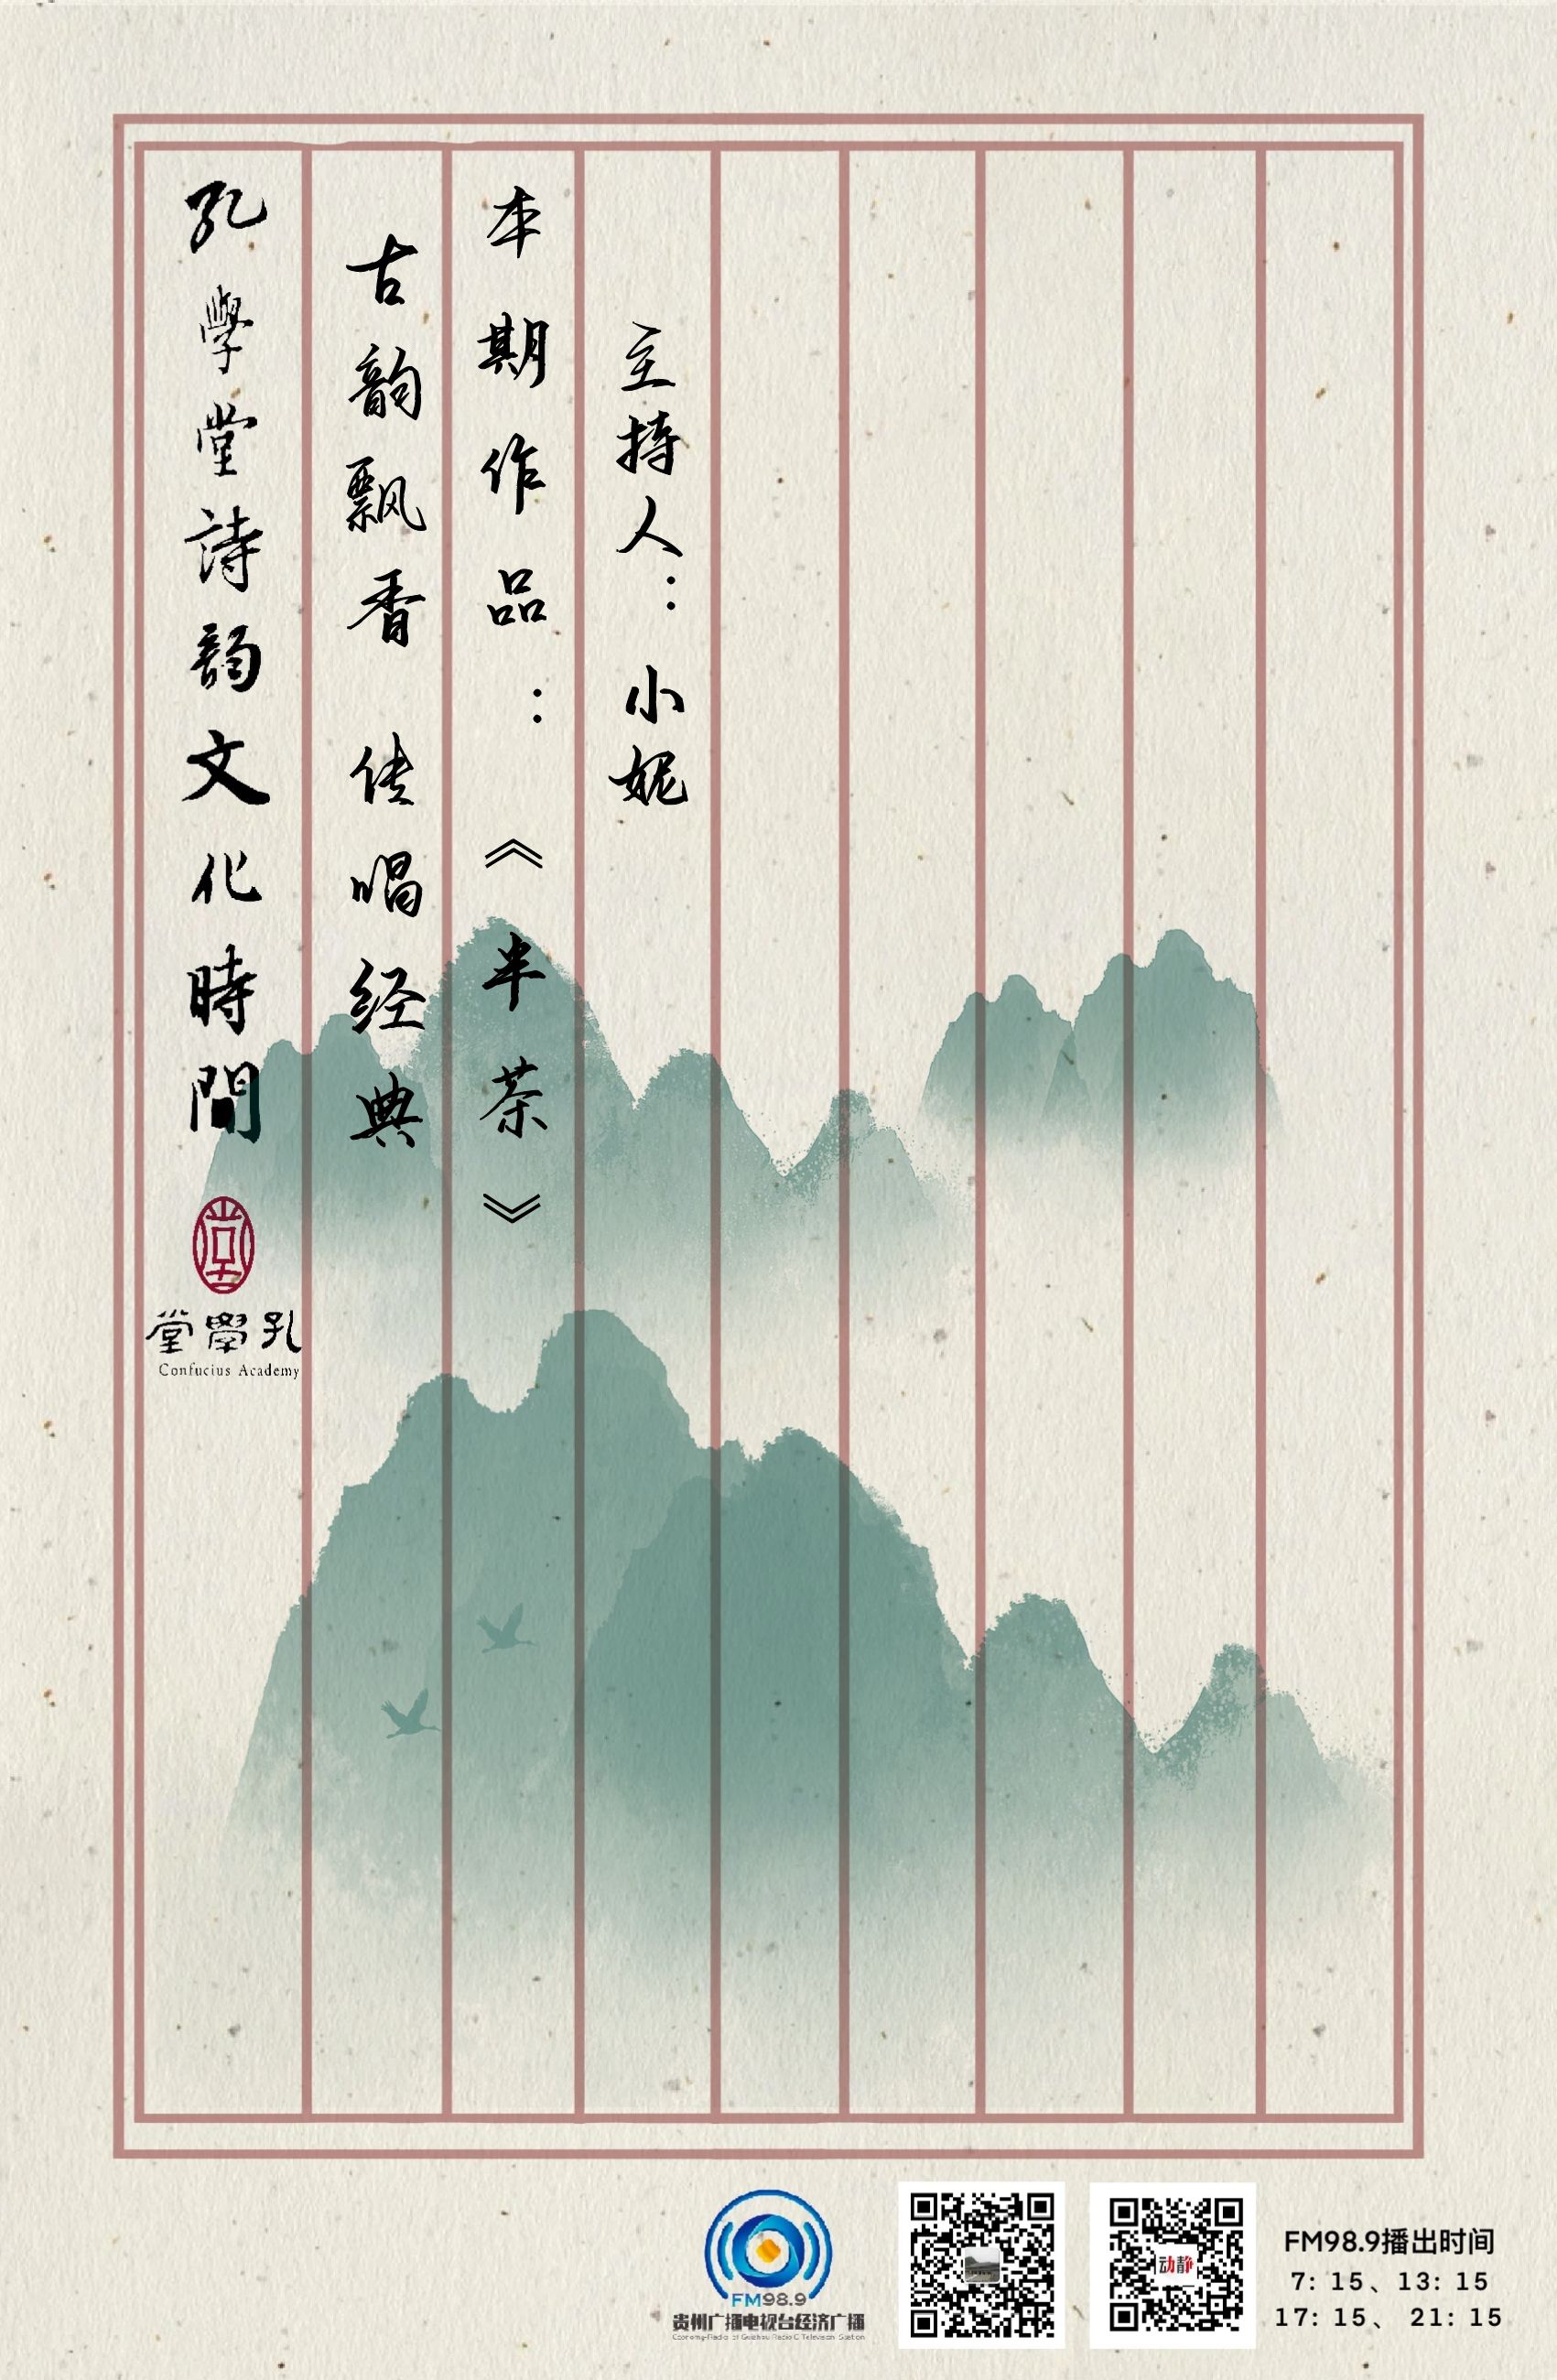 孔學堂詩韵文化時間
古韵飘香 传唱经典
本期作品：《半茶》
主持人：小妮
堂學孔
Confucius Academy
FM98.9
贵州广播电视台经济广播
动静
FM98.9播出时间
7: 15、13: 15
17: 15、 21: 15